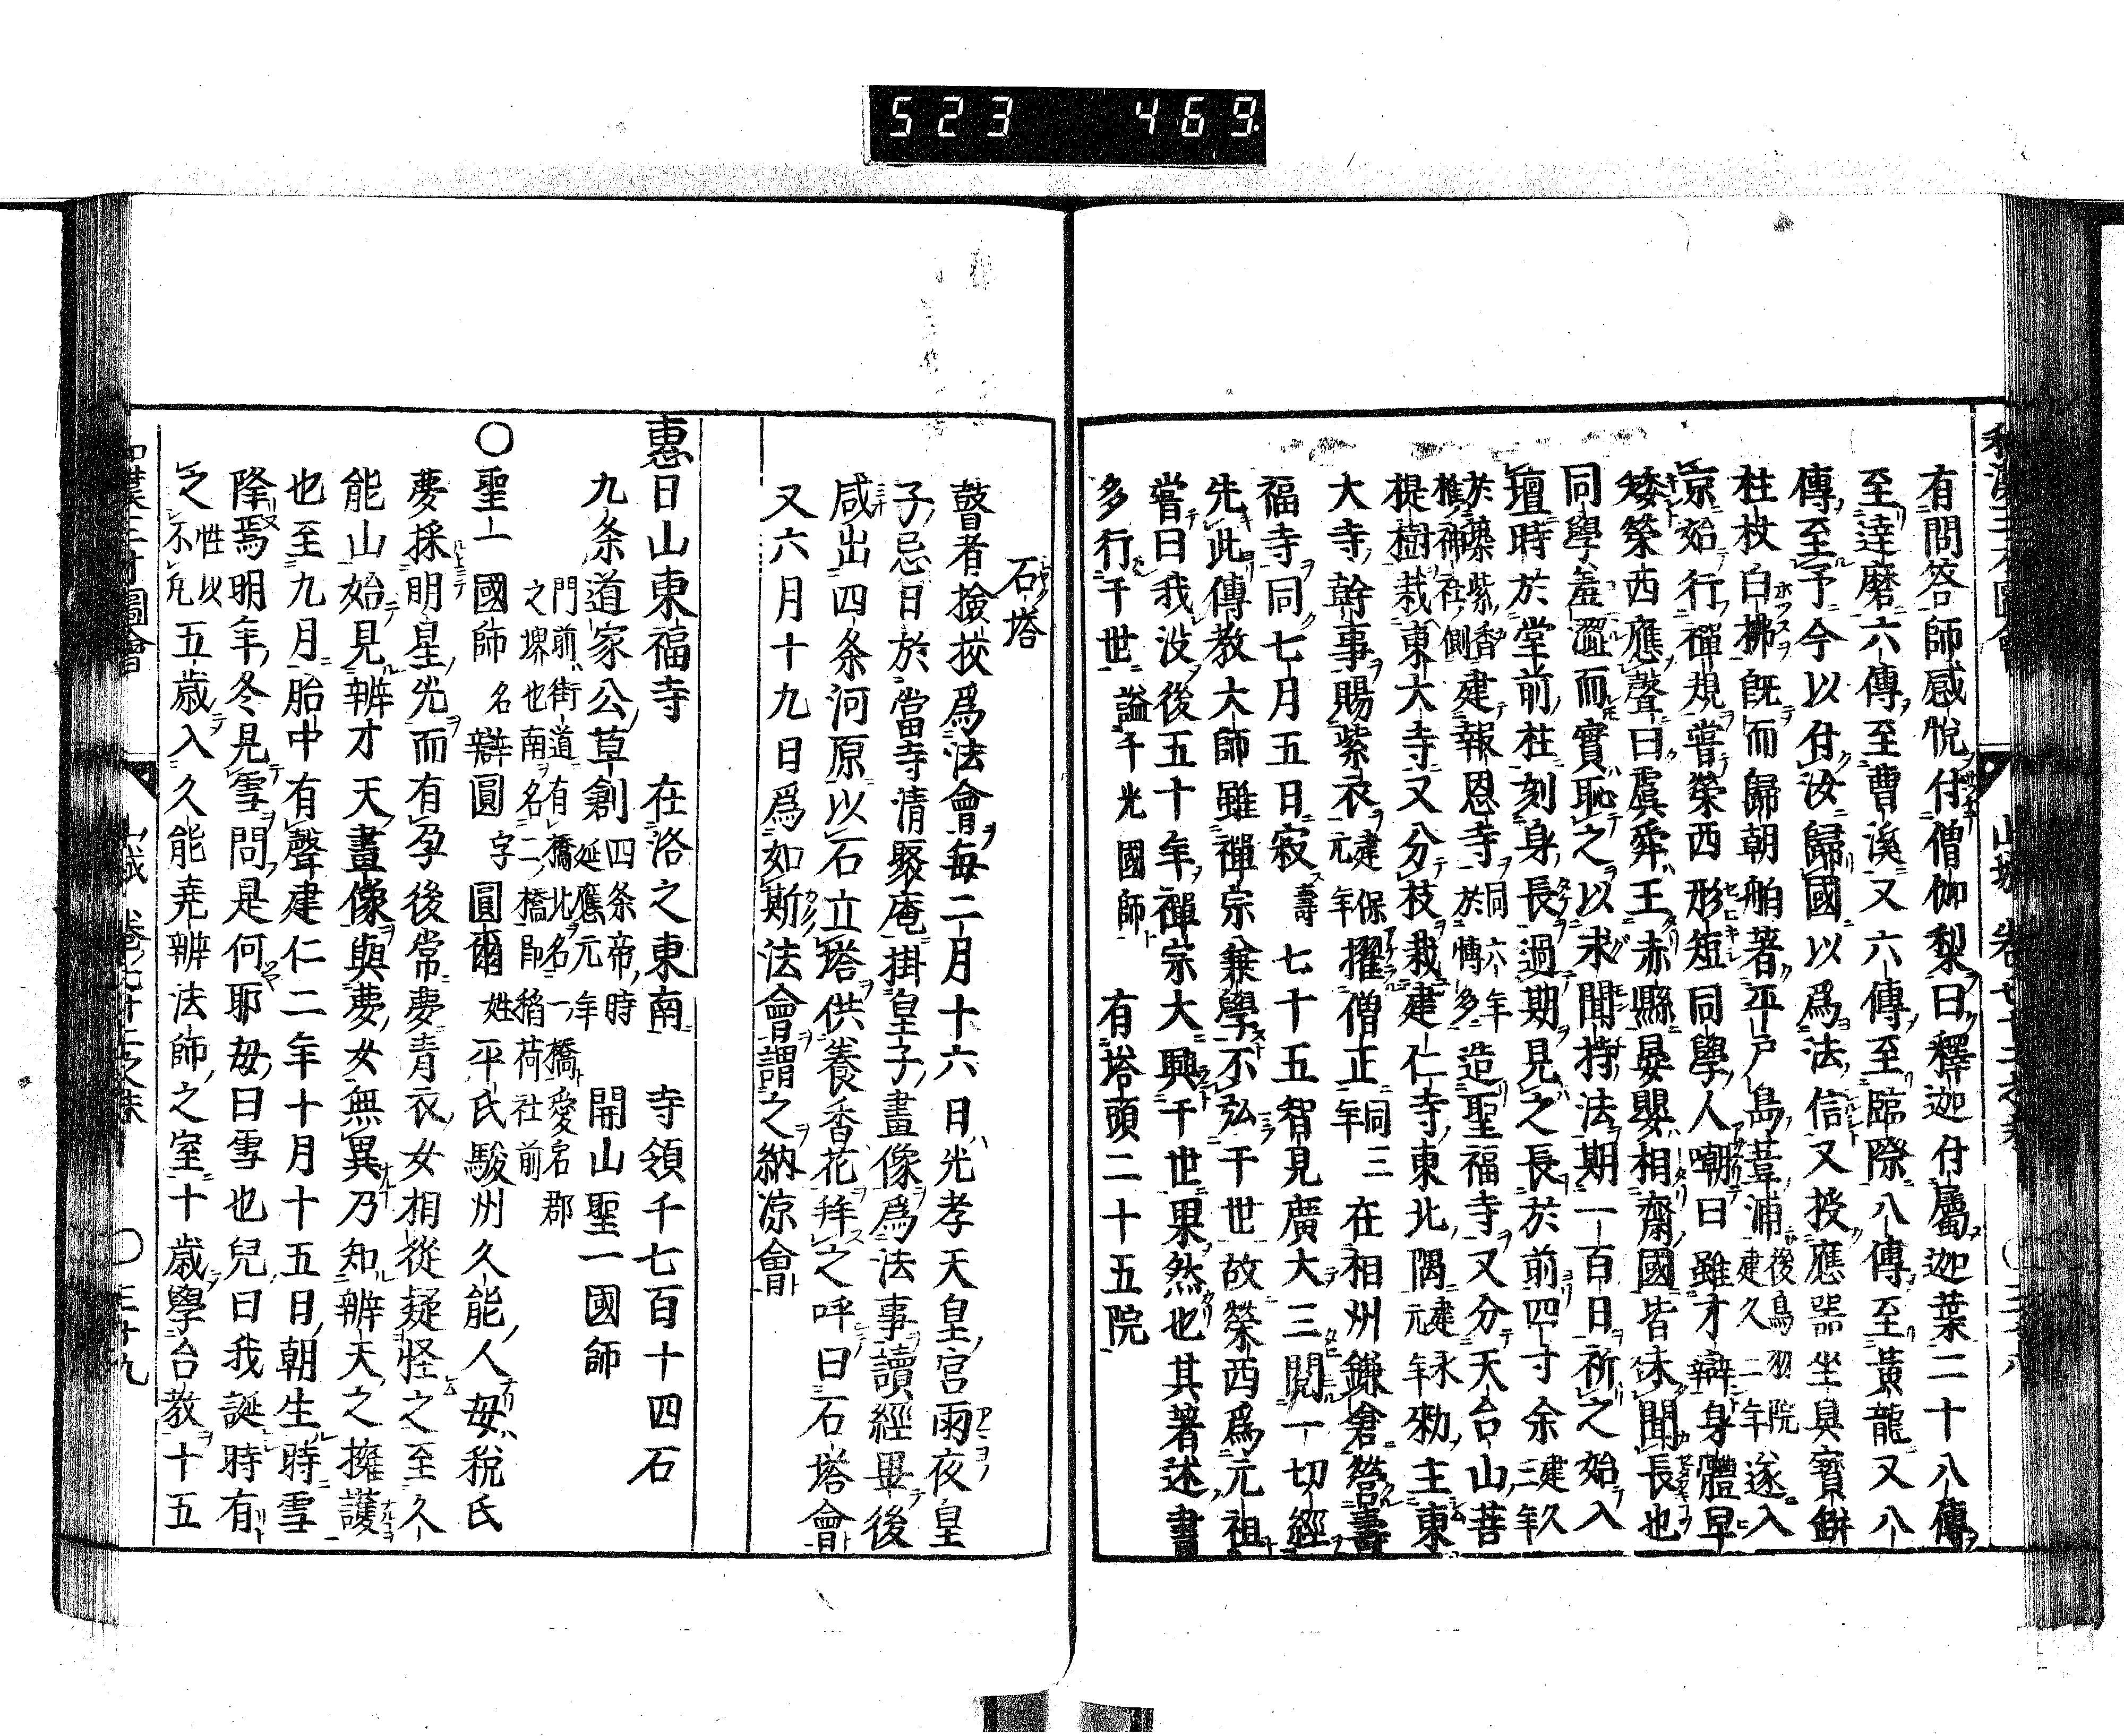 523 469
有問答師感悦付僧伽梨曰釋迦付屬迦葉二十八傳
至達磨六傳至曹溪又六傳至臨際八傳至黄龍又八
傳至予今以付汝歸國以爲法信又授應噐坐具寶鉼
柱杖白拂既而歸朝舶著平戸島葦浦後鳥羽院建久二年遂入
京始行禪規嘗榮西形短同學人嘲曰雖才辯身體早
矮榮西應聲曰虞舜王赤縣晏嬰相齋國皆未聞長也
同學羞澀而實耻之以求聞持法期一百日祈之始入
壇時於堂前柱刻身長過期見之長於前四寸余建久三年
於築紫香椎神社側建報恩寺同六年於博多造聖福寺又分天台山菩
提樹栽東大寺又分枝栽建仁寺東北隅建永元年勑主東
大寺幹事賜紫衣建保元年擢僧正同三年在相州鎌倉營壽
福寺同七月五日寂壽七十五智見廣大三閲一切經
先此傳教大師雖禪宗兼學不弘于世故榮西爲元祖
嘗曰我没後五十年禪宗大興于世果然也其著述書
多行于世謚千光國師 有塔頭二十五院
石塔
瞽者撿挍爲法會毎二月十六日光孝天皇宮雨夜皇
子忌日於當寺清聚庵掛皇子畫像爲法事讀經畢後
咸出四条河原以石立塔供養香花拜之呼曰石塔會
又六月十九日爲如斯法會謂之納凉會
惠日山東福寺 在洛之東南 寺領千七百十四石
九条道家公草創四条帝時延應元年 開山聖一國師
門前街道有橋北名一橋愛宕郡
之堺也南名二橋即稻荷社前
〇聖一國師名辯圓字圓爾姓平氏駿州久能人母税氏
夢採明星光而有孕後常夢青衣女相從疑怪之至久
能山始見辨才天畫像與夢女無異乃知辨天之擁護
也至九月胎中有聲建仁二年十月十五日朝生時雪
降焉明年冬見雪問是何耶母曰雪也兒曰我誕時有
之性以不凡五歳入久能尭辨法師之室十歳學台教十五